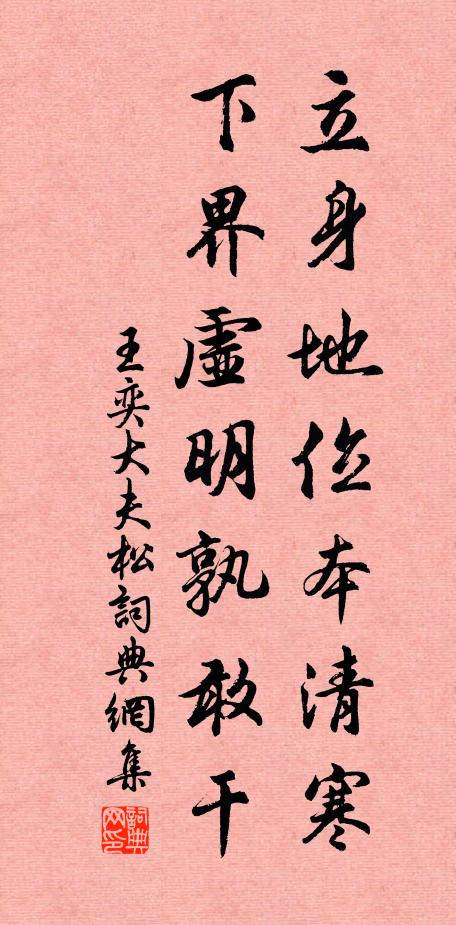 立身地位本清寒
下界虛明孰敢干
王奕大夫松詞典網集
詞典网印